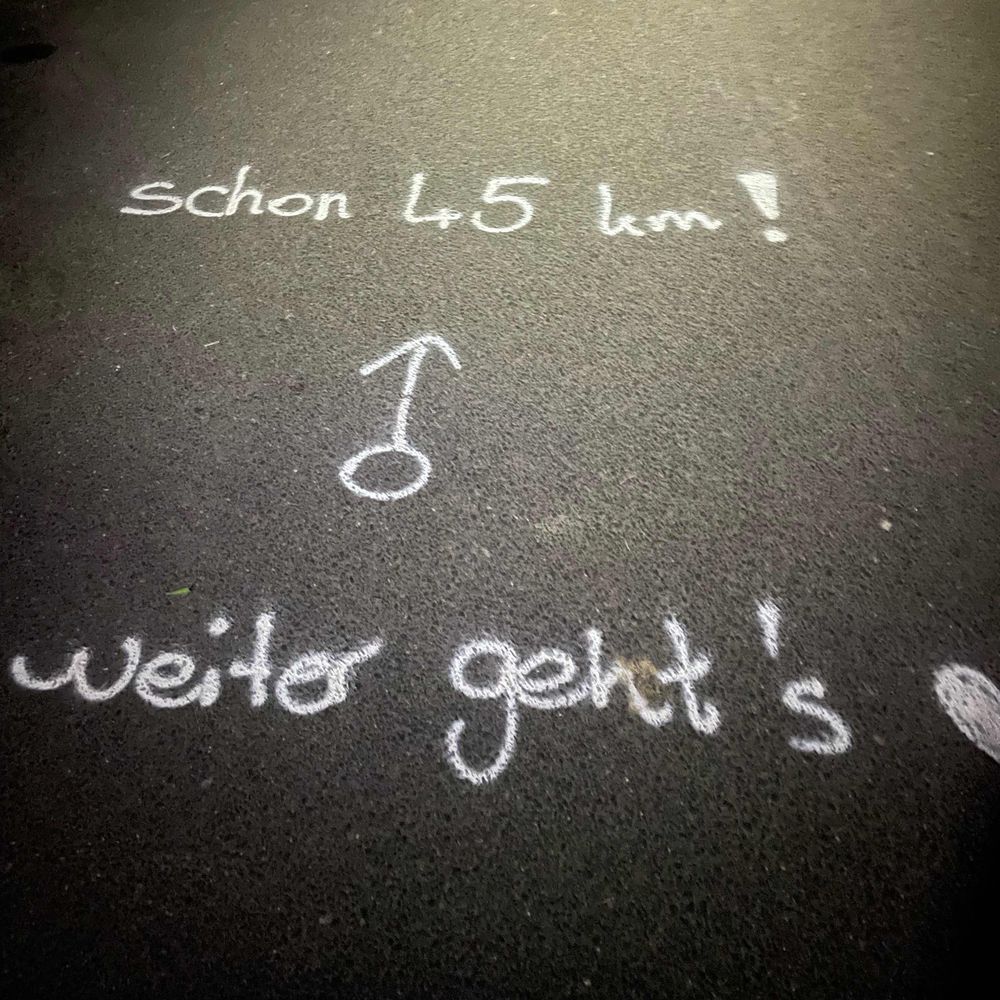 schon 45 km!
weiter geht's